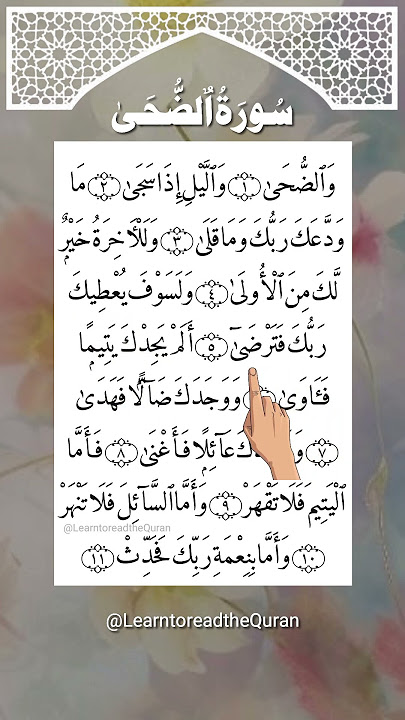 سُورَةُ ٱلضُّحَىٰ
وَٱلضُّحَىٰ ١ وَٱلَّيْلِ إِذَا سَجَىٰ ٢ مَا
وَدَّعَكَ رَبُّكَ وَمَا قَلَىٰ ٣ وَلَلْأَخِرَةُ خَيْرٌ
لَّكَ مِنَ ٱلْأُولَىٰ ٤ وَلَسَوْفَ يُعْطِيكَ
رَبُّكَ فَتَرْضَىٰٓ ٥ أَلَمْ يَجِدْكَ يَتِيمًا
فَـَٔاوَىٰ وَوَجَدَكَ ضَآلًّا فَهَدَىٰ
٧ عَآئِلًا فَأَغْنَىٰ ٨ فَأَمَّا
ٱلْيَتِيمَ فَلَا تَقْهَرْ ٩ وَأَمَّا ٱلسَّآئِلَ فَلَا تَنْهَرْ
@LearntoreadtheQuran
١٠ وَأَمَّا بِنِعْمَةِ رَبِّكَ فَحَدِّثْ ١١
@LearntoreadtheQuran